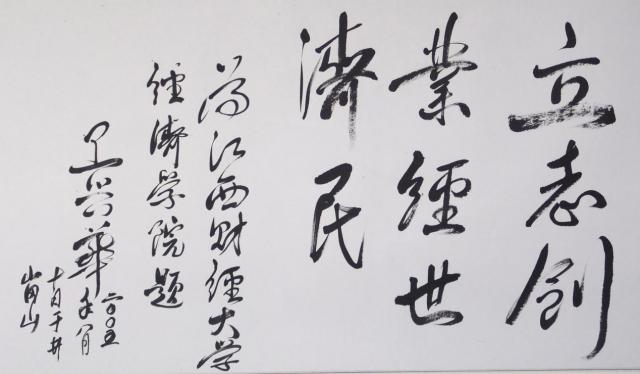 立志創
業經世
濟民
為江西財經大學
經濟學院題
王興華
二〇〇五
年八月
于井
岡山